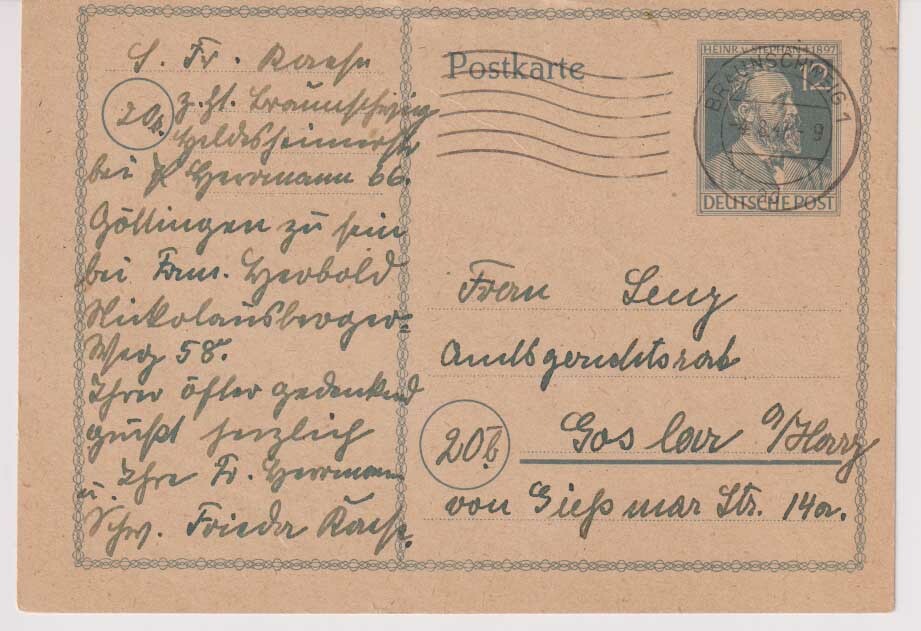 S. Fr. Kaese
20b.
z. Zt. Braunschweig
Hildesheimerstr
bei Herrmann 66.
Göttingen zu sein
bei Fam. Herbold
Nickolausberger-
Weg 58.
Ihrer öfter gedenkend
grüßt herzlich
u. Ihre Fr. Herrmann
Schw. Frieda Kaese.
Postkarte
HEINR. v. STEPHAN † 1897
12
DEUTSCHE POST
BRAUNSCHWEIG 1
Frau Lenz
Amtsgerichtsrat
20b
Goslar a/Harz
von Gießmar Str. 14a.